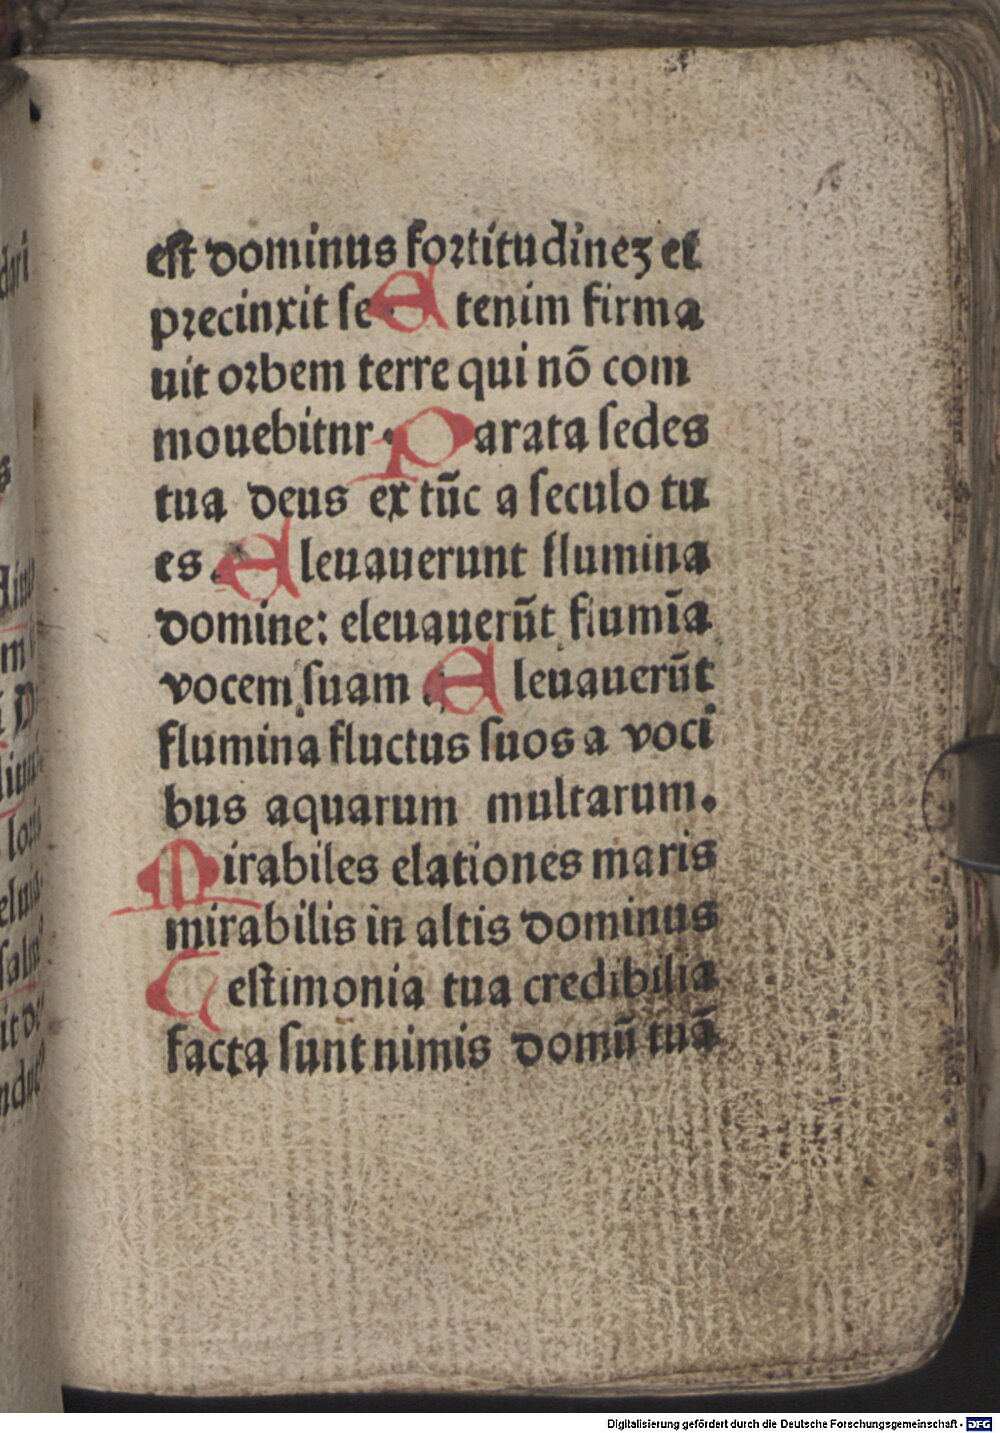 est dominus fortitudinez et
precinxit se Etenim firma
uit orbem terre qui nō com
mouebitnr. Parata sedes
tua deus ex tūc a seculo tu
es. Eleuauerunt flumina
domine: eleuauerūt flumīa
vocem suam. Eleuauerūt
flumina fluctus suos a voci
bus aquarum multarum.
Mirabiles elationes maris
mirabilis in altis dominus
Testimonia tua credibilia
facta sunt nimis domū tuā
Digitalisierung gefördert durch die Deutsche Forschungsgemeinschaft - DFG